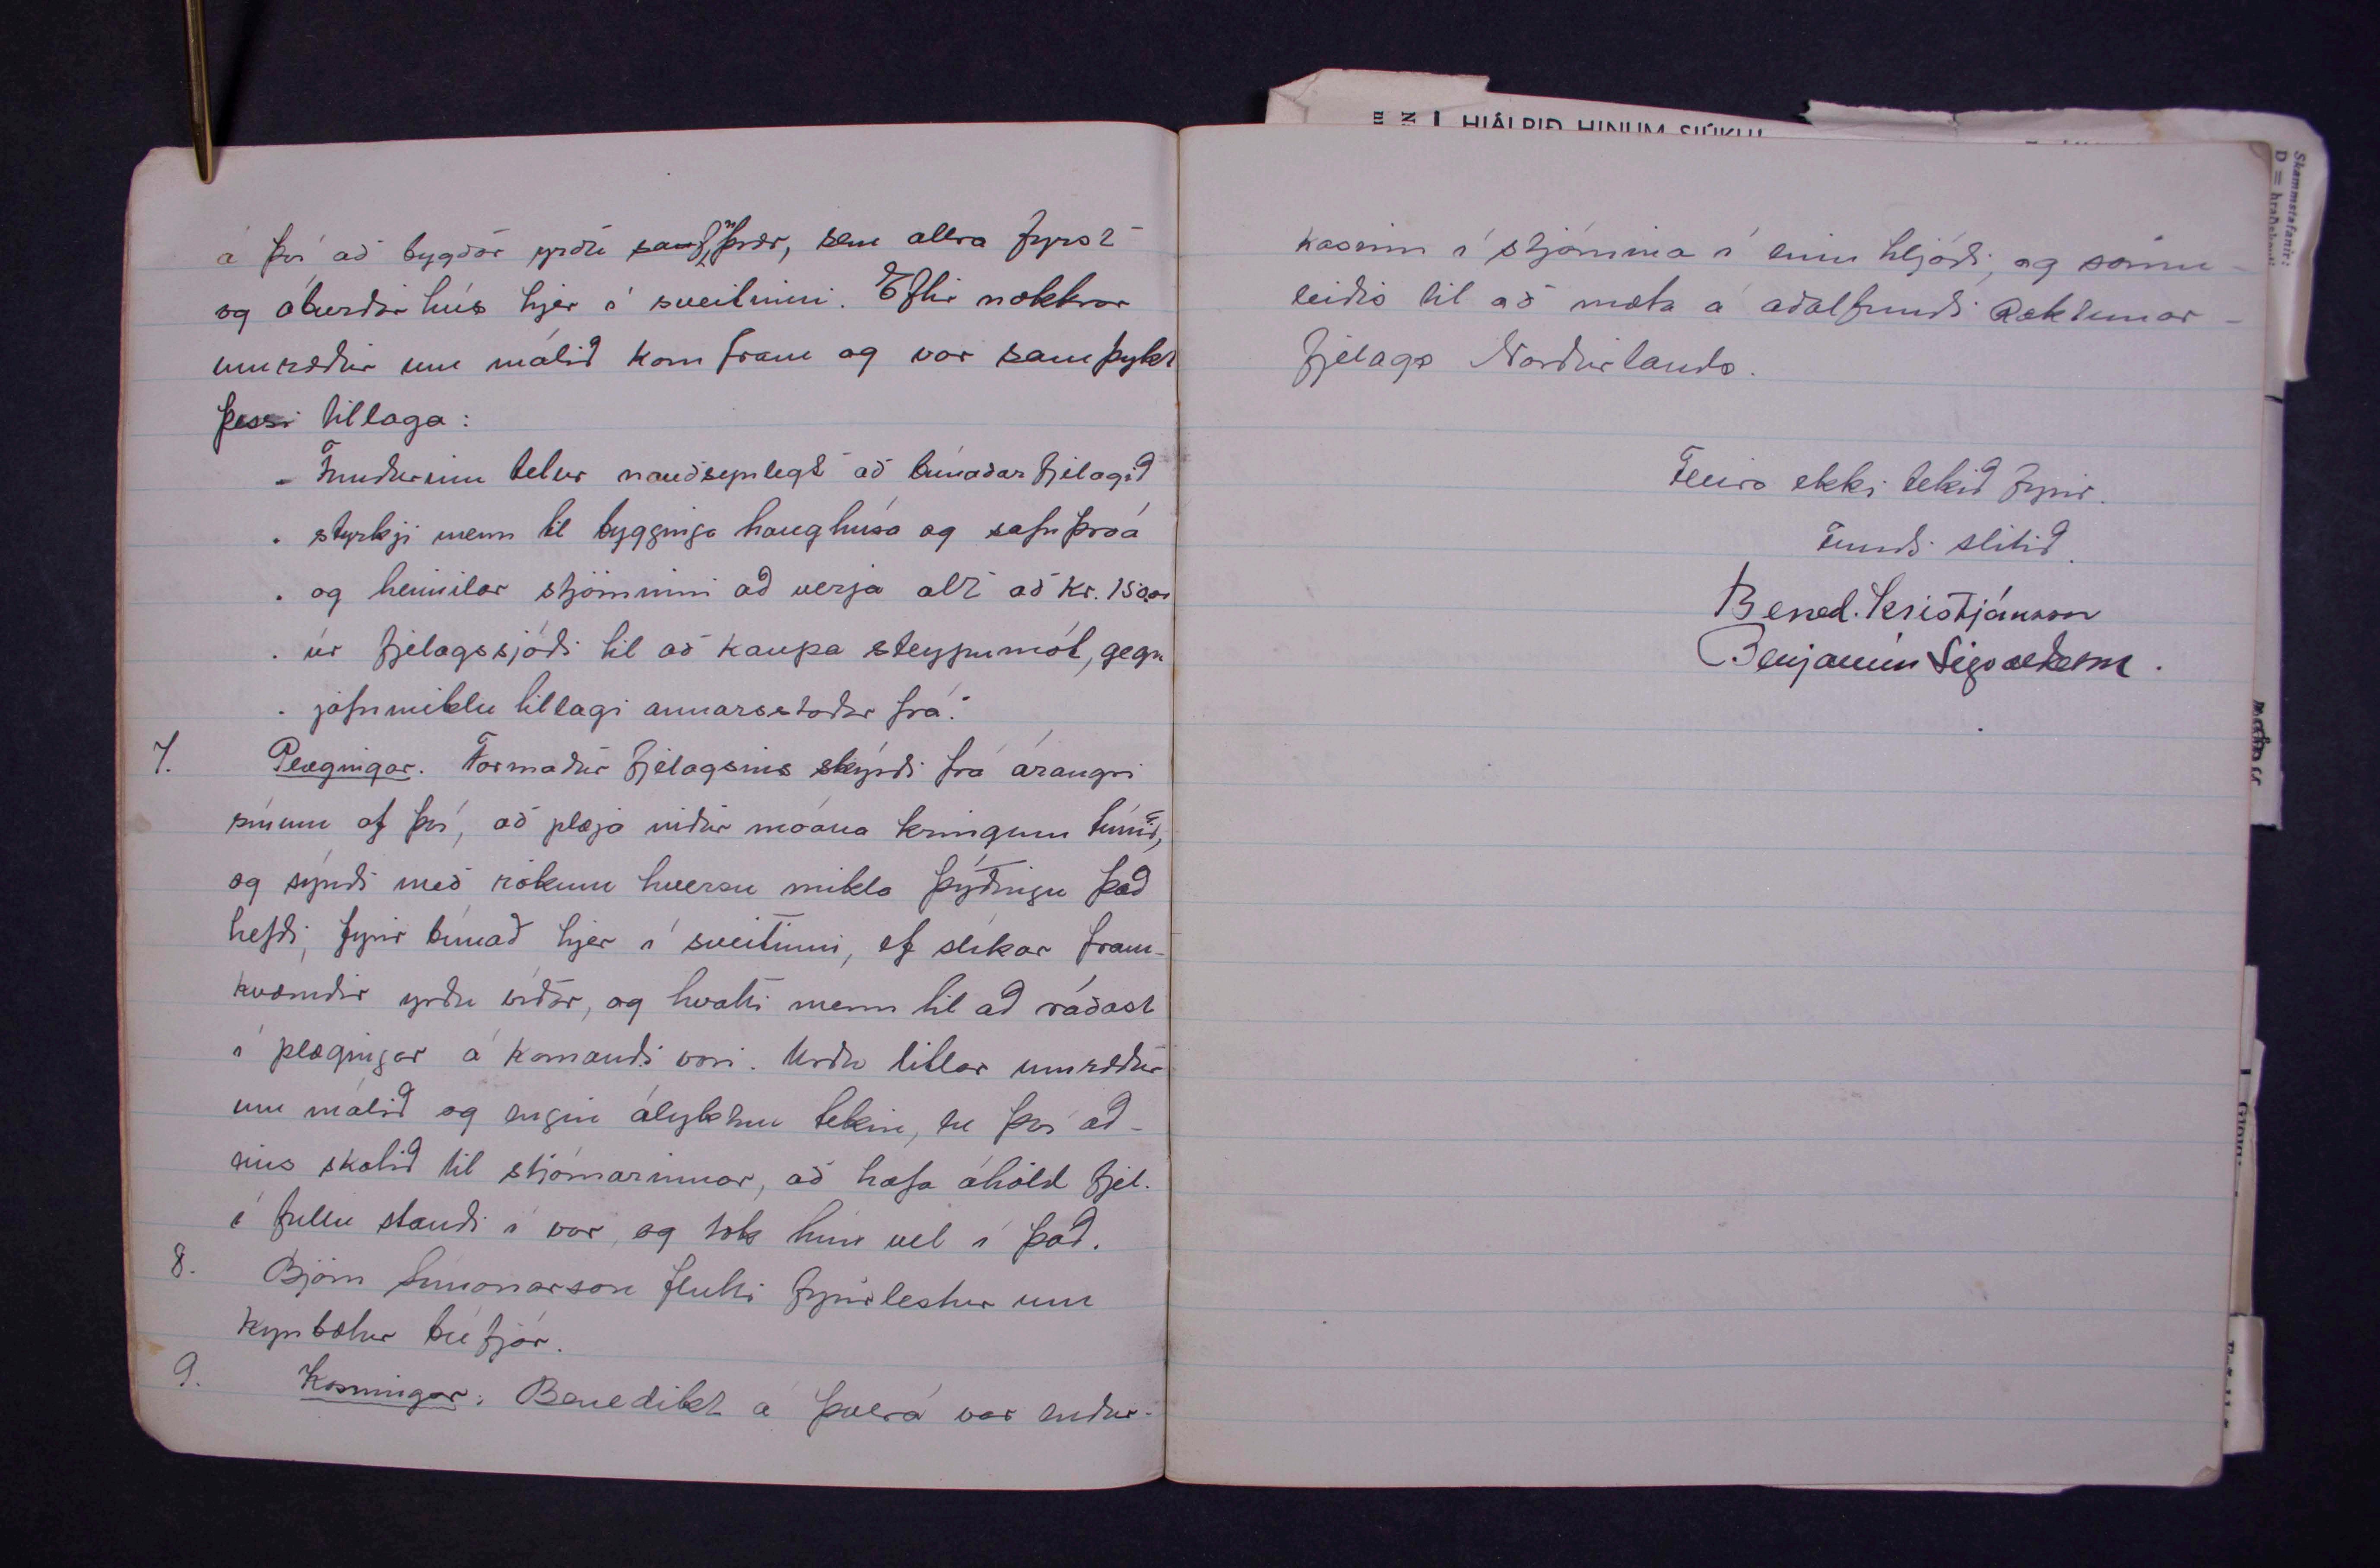 á því að bygðar yrðu safnþrær, sem allra fyrst
og áburðarhús hjer í sveitinni. Eftir nokkrar
umræður um málið kom fram og var samþykt
þessi tillaga:
„Fundurinn telur nauðsynlegt að búnaðarfjelagið
styrkji menn til bygginga haughúsa og safnþróa
og heimilar stjórninni að verja alt að kr. 150.00
úr fjelagssjóði til að kaupa steypumót, gegn
jafnmiklu tillagi annarsstaðar frá."
7. Plægingar. Formaður fjelagsins skýrði frá árangri
sínum af því, að plæja niður móana kringum túnið,
og sýndi með rökum hversu mikla þýðingu það
hefði, fyrir búnað hjer í sveitinni, ef slíkar fram-
kvæmdir yrðu víðar, og hvatti menn til að ráðast
í plægingar á komandi vori. Urðu litlar umræður
um málið og engin ályktun tekin, en því að-
eins skotið til stjórnarinnar, að hafa áhöld fjel.
í fullu standi í vor, og tók hún vel í það.
8. Björn Símonarson flutti fyrirlestur um
kynbætur búfjár.
9. Kosningar: Benedikt á Þverá var endur-
kosinn í stjórnina í einu hljóði, og sömu-
leiðis til að mæta á aðalfundi Ræktunar-
fjelags Norðurlands.
Fleira ekki tekið fyrir.
Fundi slitið.
Bened. Kristjánsson
Benjamín Sigvaldason.
HJÁLPIÐ HINUM SJÚKU!
Skammstafanir:
D = hraðskeyti